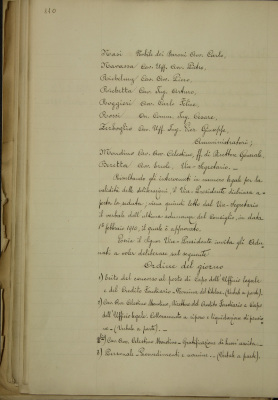 110
Nasi Nobile dei Baroni Avv. Carlo,
Navarra Cav. Uff. Avv. Pietro,
Cav. Avv. Piero,
Rocchetta Cav. Ing. Arturo,
Roggieri Avv. Carlo Felice,
Rossi On. Comm. Ing. Cesare,
Cav. Uff. Ing. Giuseppe,
Amministratori,
Mondino Cav. Avv. Celestino, ff. di Direttore Generale,
Beretta Avv. Vice-Segretario.
Risultando gli intervenuti in numero legale per la
validità delle deliberazioni, il Vice-Presidente dichiara a-
perta la seduta, viene quindi letto dal Vice-Segretario
il verbale dell'ultima adunanza del Consiglio, in data
1° febbraio 1910, il quale è approvato.
Il Signor Vice-Presidente invita gli Adu-
nati a voler deliberare sul seguente
Ordine del giorno
1) Esito del concorso al posto di Capo dell'Ufficio legale
e del Credito Fondiario - Nomina del titolare. (Veduta a parte).
2) Cav. Avv. Celestino Mondino, Direttore del Credito Fondiario e Capo
dell'Ufficio legale. Collocamento a riposo e liquidazione di pensio-
ne - (Veduta a parte). -
Cav. Avv. Celestino Mondino - Gratificazione di buon'uscita. -
Personale - Provvedimenti e nomine - (Veduta a parte). -